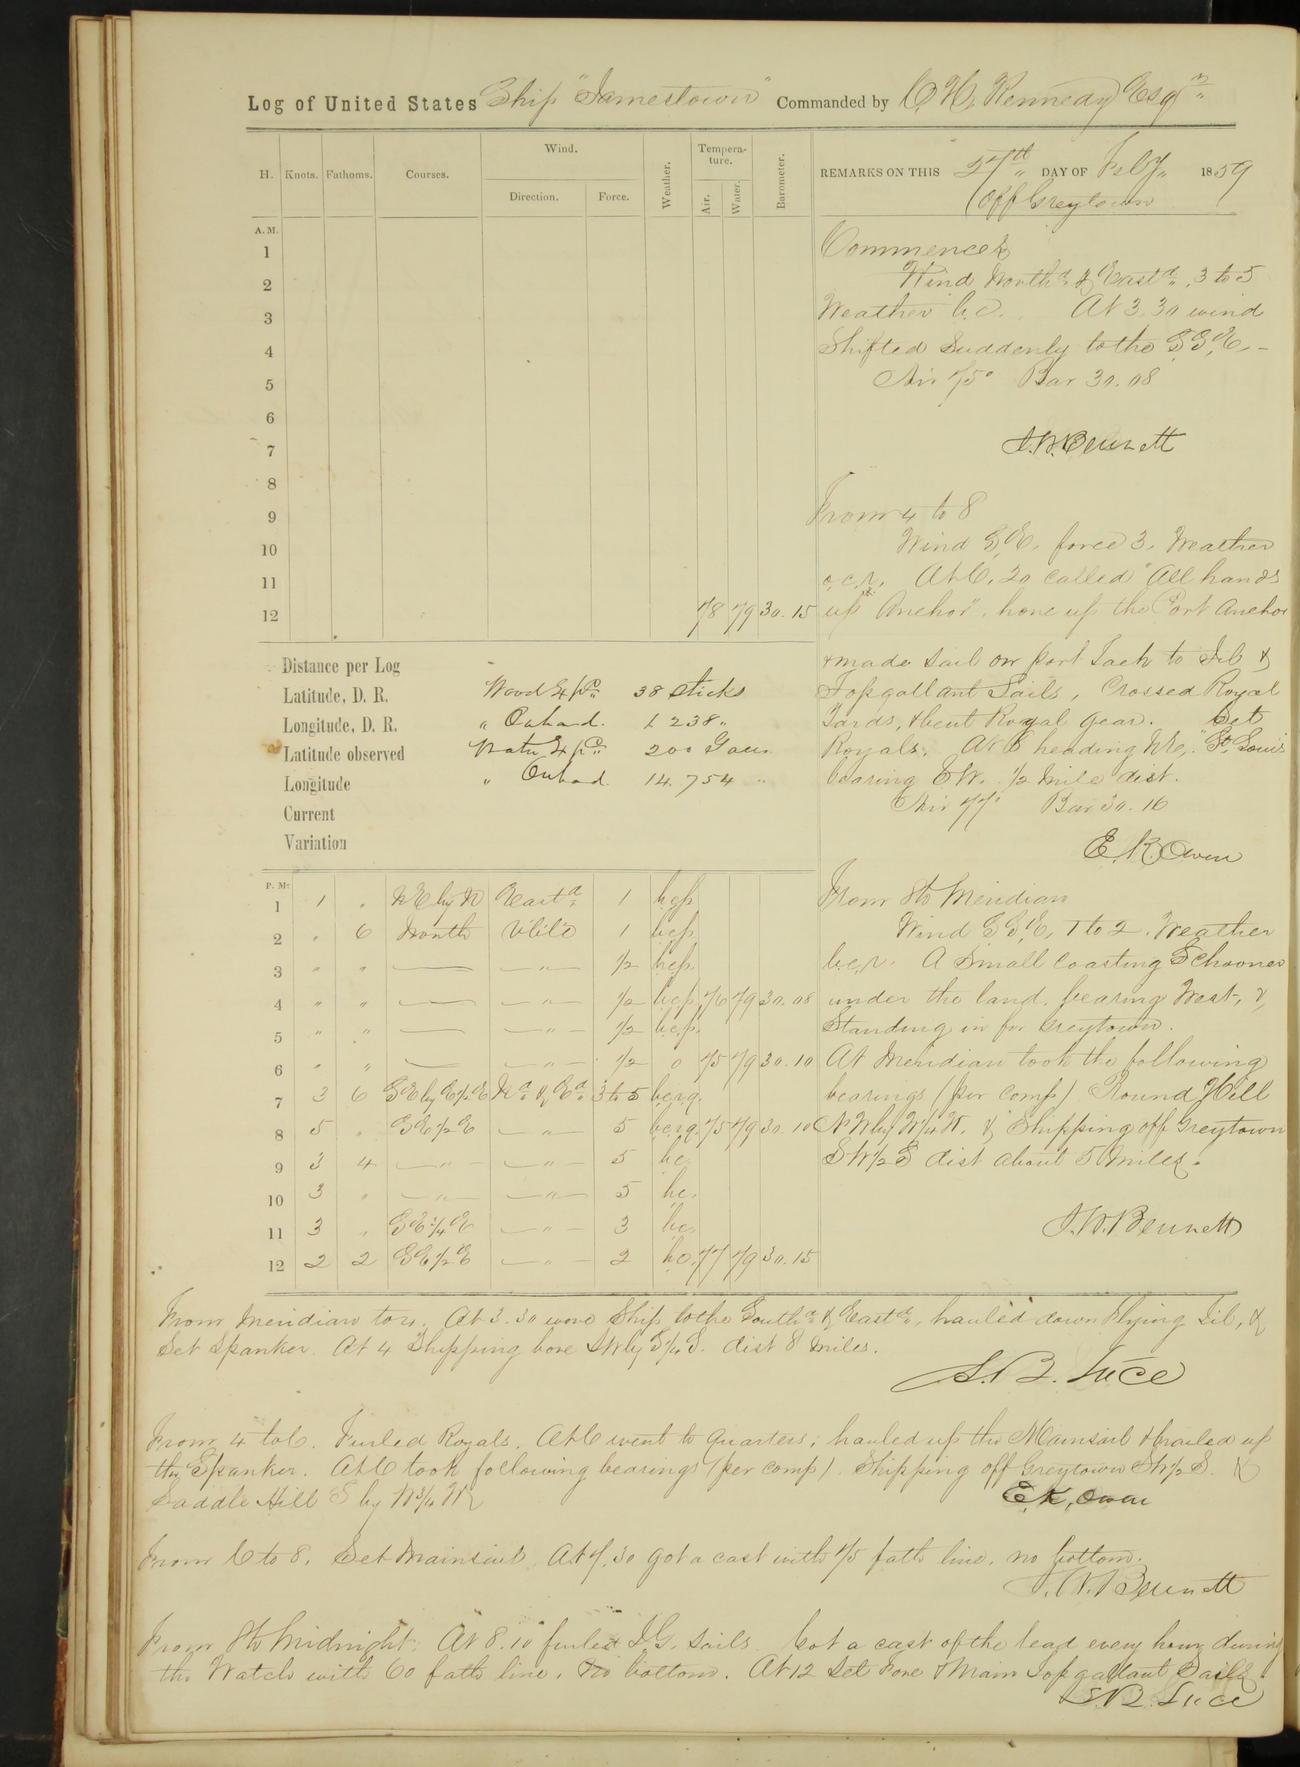 Log of United States Ship "Jamestown" Commanded by C. H. Kennedy Esqr
H. Knots. Fathoms. Courses. Wind. Direction. Force. Weather. Tempera-ture. Air. Water. Barometer.
REMARKS ON THIS 27th DAY OF Feby 1859
Off Greytown
A.M.
1
2
3
4
5
6
7
8
9
10
11
12 78 79 30.15
Commences
Wind Northd & Eastd, 3 to 5
Weather b.c. At 3.30 wind
Shifted Suddenly to the S.S.E. –
Air 75° Bar 30.08
J.W. Bennett
From 4 to 8
Wind S.E. force 3. Weather
o.c.r. At 6.20 called "All hands
up Anchor", hove up the Port Anchor
& made sail on port Tack to Jib &
Topgallant Sails, Crossed Royal
Yards, & bent Royal gear. Set
Royals. At 8 heading NE, "St. Louis"
bearing S.W. 1/2 mile dist.
Air 77° Bar 30.16
E. K. Owen
From 8 to Meridian
Wind S.S.E. 1 to 2. Weather
b.c.r. A Small Coasting Schooner
under the land, bearing West, &
Standing in for Greytown.
At Meridian took the following
bearings (per comp) Round Hill
N.W. by W 1/4 W. & Shipping off Greytown
S W 1/2 S dist about 5 miles.
J.W. Bennett
Distance per Log
Latitude, D. R. Wood Expd 38 Sticks
Longitude, D. R. " Onhand. 1238 "
Latitude observed Water Expd 200 Galls
Longitude " Onhand. 14.754 "
Current
Variation
P. M.
1 1 " NE by N Eastd 1 bcp
2 " 6 North Vble 1 bcp
3 " " — — " — 1/2 bcp.
4 " " — — " — 1/2 bcp. 76 79 30.08
5 " " — — " — 1/2 bcp.
6 " " — — " — 1/2 o 75 79 30.10
7 3 6 SE by E 1/2 E Nd & Ed 3 to 5 bcrq.
8 5 " SE 1/2 E — " — 5 bcrq. 75 79 30.10
9 3 4 — " — — " — 5 bc
10 3 " — " — — " — 5 bc.
11 3 " SE 1/4 E — " — 3 bc.
12 2 2 SE 1/2 E — " — 2 bc. 77 79 30.15
From Meridian to 4. At 3.30 wore Ship to the Southd & Eastd, hauled down Flying Jib, &
Set Spanker. At 4 Shipping bore SW by S 1/4 S. dist 8 miles.
S. B. Luce
From 4 to 6. Furled Royals. At 6 went to quarters, hauled up the Mainsail & brailed up
the Spanker. At 6 took following bearings (per comp). Shipping off Greytown SW 1/2 S. &
Saddle Hill S by W 3/4 W
E. K. Owen
From 6 to 8. Set Mainsail. At 7.30 got a cast with 75 fath line, no bottom.
J. W. Bennett
From 8 to Midnight. At 8.10 furled T.G. Sails. Got a cast of the lead every hour during
the Watch with 60 fath line, no bottom. At 12 Set Fore & Main Topgallant Sails.
S. B. Luce